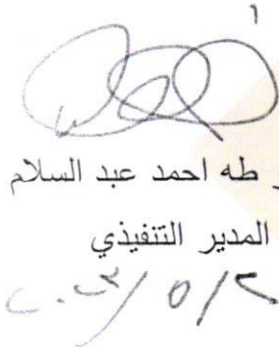 طه احمد عبد السلام
المدير التنفيذي
٢٠٢٣/٥/٢